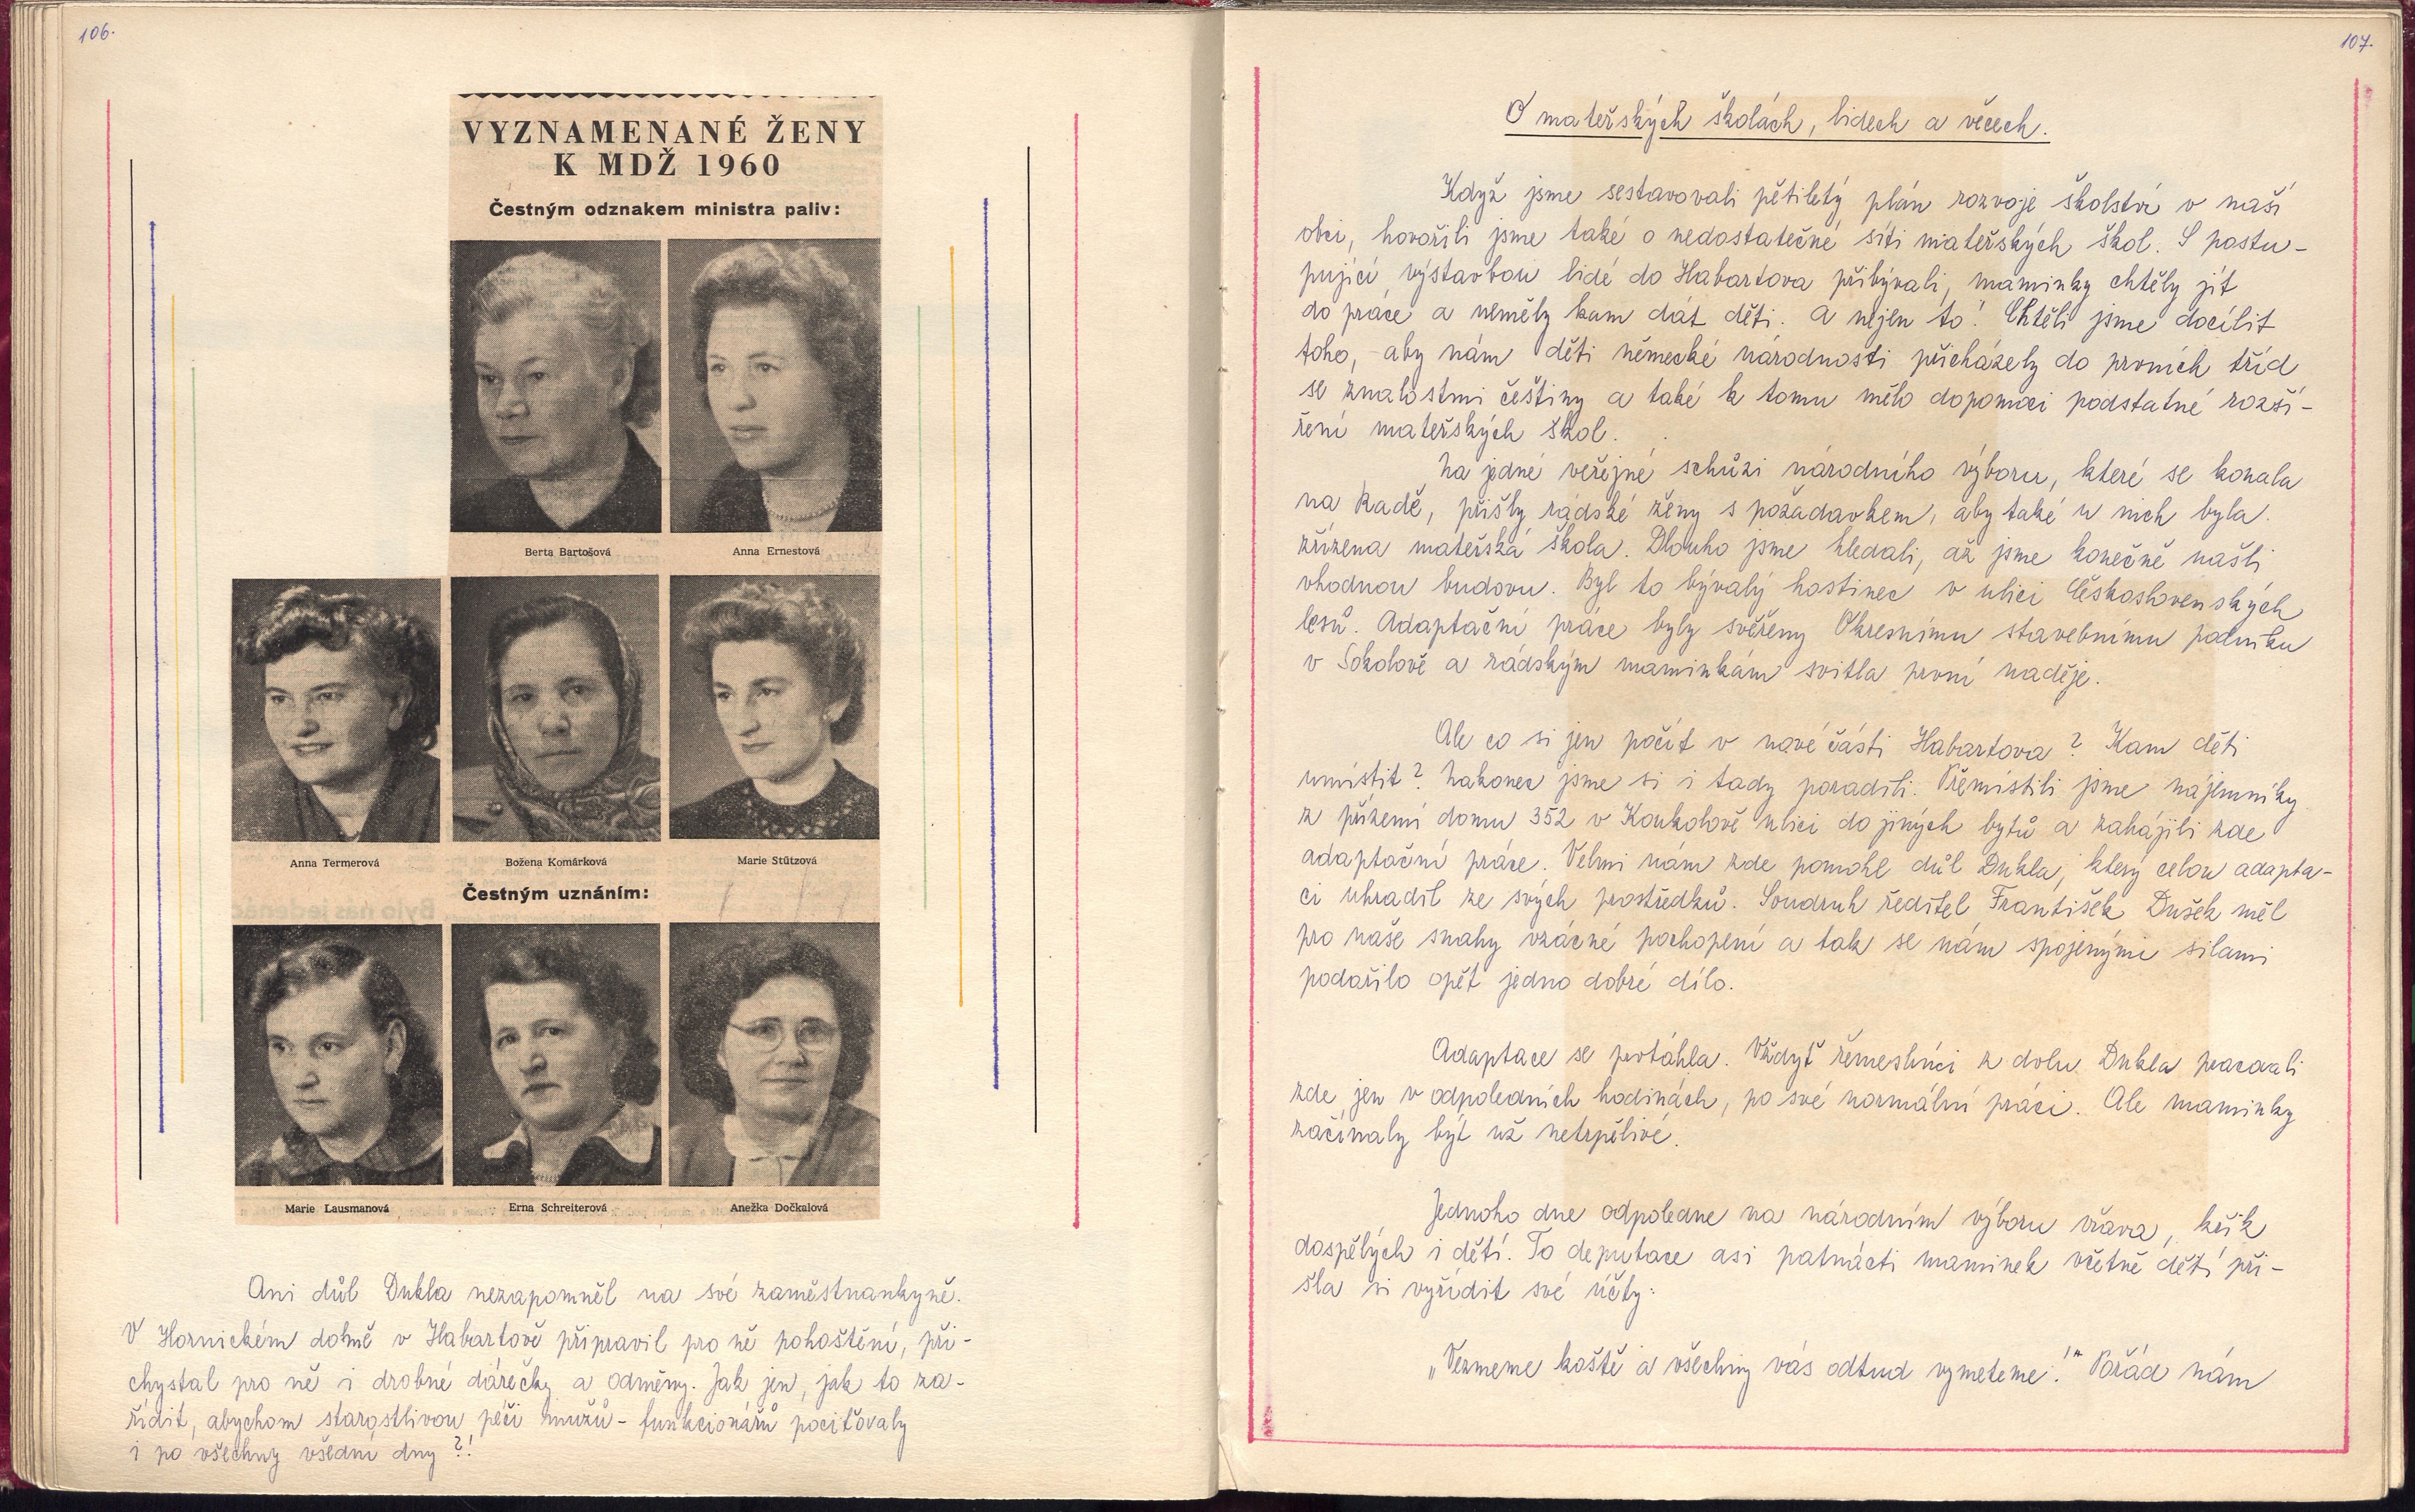 106.
VYZNAMENANÉ ŽENY
K MDŽ 1960
Čestným odznakem ministra paliv:
Berta Bartošová
Anna Ernestová
Anna Termerová
Božena Komárková
Marie Stützová
Čestným uznáním:
Marie Lausmanová
Erna Schreiterová
Anežka Dočkalová
Ani důl Dukla nezapomněl na své zaměstnankyně.
V Hornickém domě v Habartově připravil pro ně pohoštění, při-
chystal pro ně i drobné dárečky a odměny. Jak jen, jak to za-
řídit, abychom starostlivou péči mužů - funkcionářů pociťovaly
i po všechny všední dny?!
107.
O mateřských školách, lidech a věcech.
Když jsme sestavovali pětiletý plán rozvoje školství v naší
obci, hovořili jsme také o nedostatečné síti mateřských škol. S postu-
pující výstavbou lidé do Habartova přibývali, maminky chtěly jít
do práce a neměly kam dát děti. A nejen to! Chtěli jsme docílit
toho, aby nám děti německé národnosti přicházely do prvních tříd
se znalostmi češtiny a také k tomu mělo dopomoci podstatné rozší-
ření mateřských škol.
Na jedné veřejné schůzi národního výboru, které se konala
na Radě, přišly rádské ženy s požadavkem, aby také u nich byla
zřízena mateřská škola. Dlouho jsme hledali, až jsme konečně našli
vhodnou budovu. Byl to bývalý hostinec v ulici Československých
lesů. Adaptační práce byly svěřeny Okresnímu stavebnímu podniku
v Sokolově a rádským maminkám svitla první naděje.
Ale co si jen počít v nové části Habartova? Kam děti
umístit? Nakonec jsme si i tady poradili. Přemístili jsme nájemníky
z přízemí domu 352 v Koukolově ulici do jiných bytů a zahájili zde
adaptační práce. Velmi nám zde pomohl důl Dukla, který celou adapta-
ci uhradil ze svých prostředků. Soudruh ředitel František Dušek měl
pro naše snahy vzácné pochopení a tak se nám spojenými silami
podařilo opět jedno dobré dílo.
Adaptace se protáhla. Vždyť řemeslníci z dolu Dukla pracovali
zde jen v odpoledních hodinách, po své normální práci. Ale maminky
začínaly být už netrpělivé.
Jednoho dne odpoledne na národním výboru vřava, křik
dospělých i dětí. To deputace asi patnácti maminek včetně dětí při-
šla si vyřídit své účty:
„Vezmeme koště a všechny vás odtud vymeteme!" Pořád nám